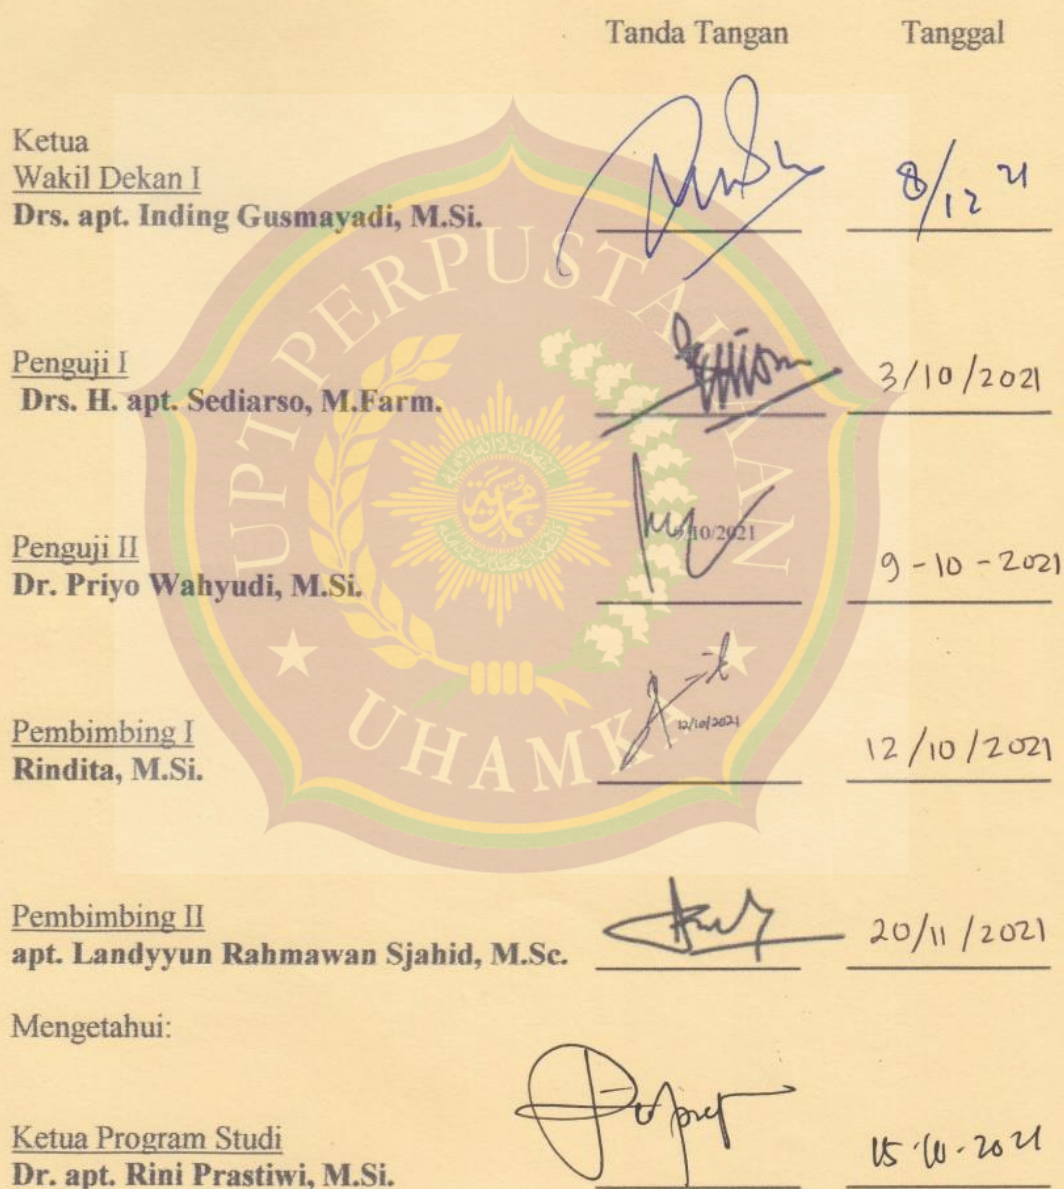 Tanda Tangan Tanggal
Ketua
Wakil Dekan I
Drs. apt. Inding Gusmayadi, M.Si.
8/12 21
Penguji I
Drs. H. apt. Sediarso, M.Farm.
3/10/2021
Penguji II
Dr. Priyo Wahyudi, M.Si.
10/2021
9-10-2021
Pembimbing I
Rindita, M.Si.
12/10/2021
12/10/2021
Pembimbing II
apt. Landyyun Rahmawan Sjahid, M.Sc.
20/11/2021
Mengetahui:
Ketua Program Studi
Dr. apt. Rini Prastiwi, M.Si.
UPT PERPUSTAKAAN
UHAMKA